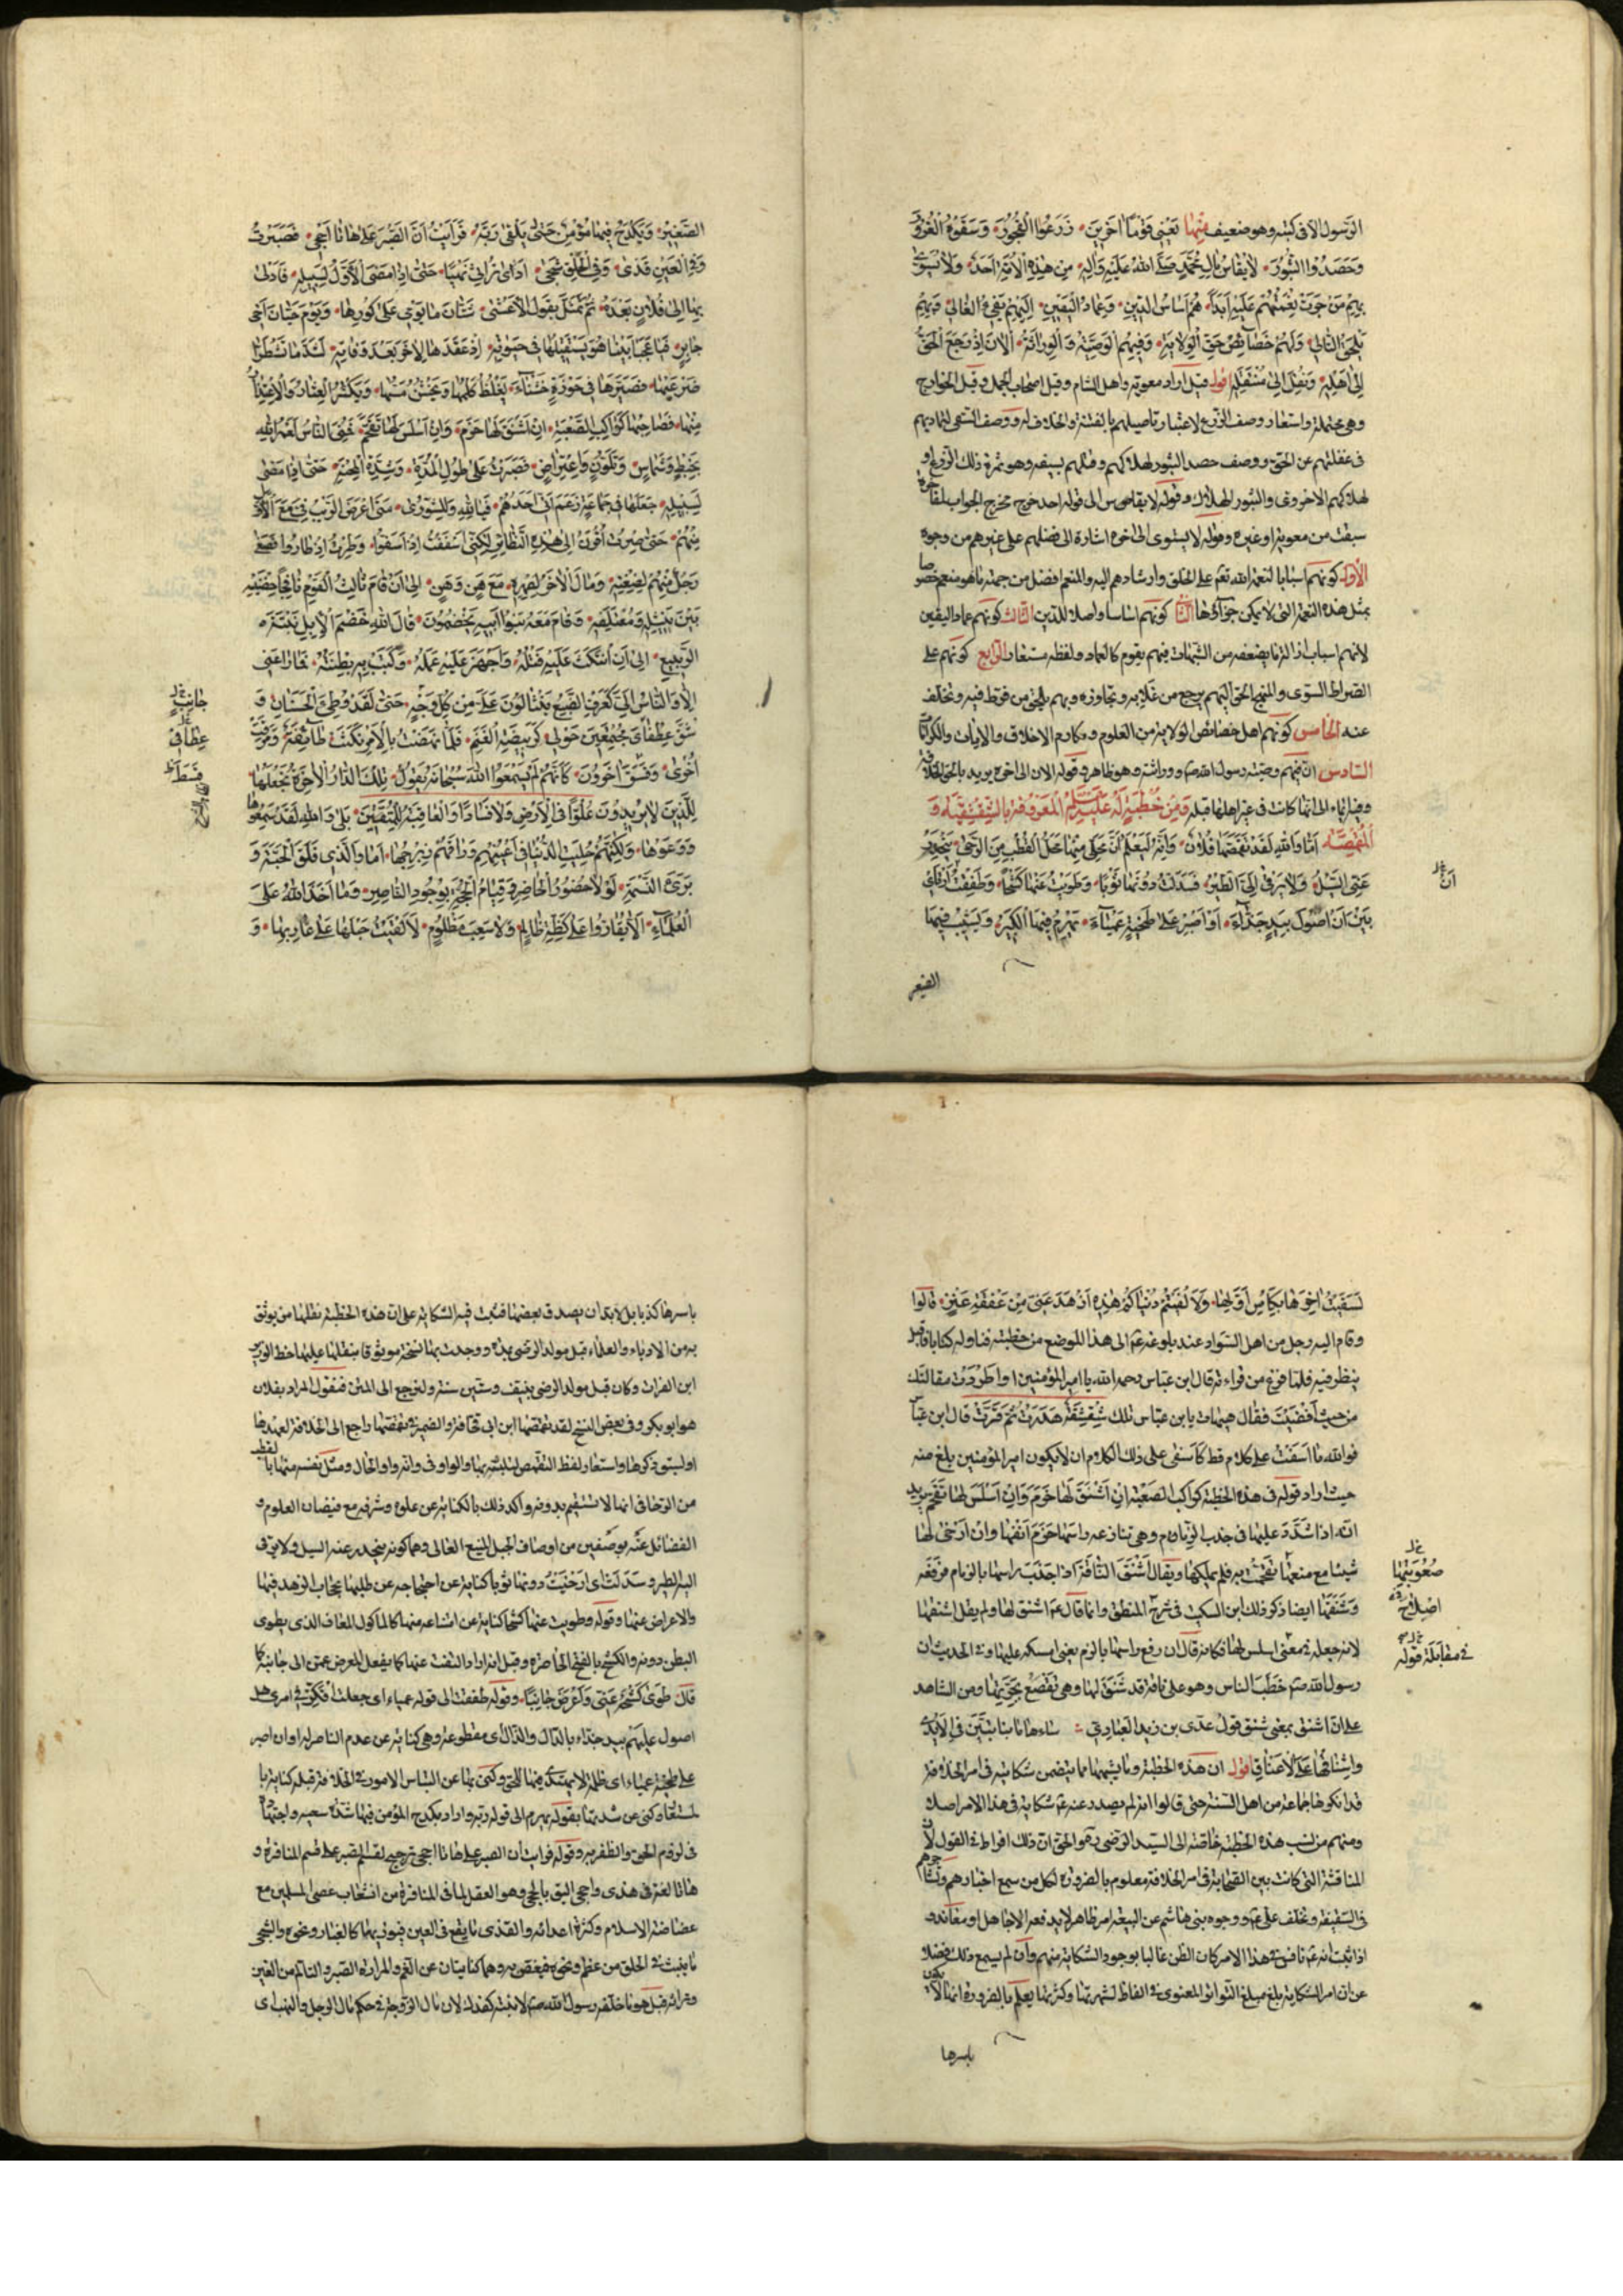 الرسول الا فى كتبه وهو ضعيف منها يعني قوما آخرين زرعوا الفجور وسقوه الغرور
وحصدوا الثبور لا يقاس بال محمد صلى الله عليه وآله من هذه الامة احد ولا يسوى
بهم من جرت نعمتهم عليه ابدا هم اساس الدين وعماد اليقين اليهم يفيء الغالي وبهم
يلحق التالي ولهم خصائص حق الولاية وفيهم الوصية والوراثة الآن اذ رجع الحق
الى اهله ونقل الى منتقله اقول قيل اراد معوية واهل الشام وقيل اصحاب الجمل وقيل الخوارج
وهى محتملة واستعار وصف الزرع لاعتبار تاصيلهم بالفتنة والخلاف له ووصف السقى لتماديهم
فى غفلتهم عن الحق ووصف حصد الثبور لهلاكهم وقتلهم بسيفه وهو ثمرة ذلك الزرع او
هلاكهم الاخروى والثبور الهلاك وقوله لا يقاس الى قوله احد خرج مخرج الجواب لمفاخرة
سبقت من معوية او غيره وقوله لا يستوى الى اخره اشارة الى فضلهم على غيرهم من وجوه
الاول كونهم اسبابا لنعمة الله تعم على الخلق وارشادهم اليه والمنعم افضل من جهة ما هو منعم خصوصا
بمثل هذه النعمة التى لا يمكن جزاؤها الثاني كونهم اساسا واصلا للدين الثالث كونهم عماد اليقين
لانهم اسباب ازالة ما يضعفه من الشبهات فبهم يقوم كالعماد ولفظه مستعار الرابع كونهم على
الصراط السوى والمنهج الحق اليهم يرجع من غلا به وتجاوزه وبهم يلحق من فرط فيه وتخلف
عنه الخامس كونهم اهل خصائص الولاية من العلوم ومكارم الاخلاق والايات والكرامات
السادس ان فيهم وصية رسول الله ص ووراثته وهو ظاهر وقوله الان الى اخره يريد بالحق الخلافة
وفيه ايماء الى انها كانت فى غير اهلها قبله ومن خطبة له عليه السلم المعروفة بالشقشقية و
المقمصة اما والله لقد تقمصها فلان وانه ليعلم ان محلي منها محل القطب من الرحى ينحدر
عني السيل ولا يرقى الي الطير فسدلت دونها ثوبا وطويت عنها كشحا وطفقت ارتأي
بين ان اصول بيد جذاء او اصبر على طخية عمياء يهرم فيها الكبير ويشيب فيها
الصغير
ان
الصغير ويكدح فيها مؤمن حتى يلقى ربه فرأيت ان الصبر على هاتا احجى فصبرت
وفي العين قذى وفي الحلق شجى ارى تراثي نهبا حتى اذا مضى الاول لسبيله فادلى
بها الى فلان بعده ثم تمثل بقول الاعشى شتان ما يومي على كورها ويوم حيان اخي
جابر فيا عجبا بينا هو يستقيلها في حيوته اذ عقدها لاخر بعد وفاته لشد ما تشطرا
ضرعيها فصيرها في حوزة خشناء يغلظ كلمها ويخشن مسها ويكثر العثار والاعتذار
منها فصاحبها كراكب الصعبة ان اشنق لها خرم وان اسلس لها تقحم فمني الناس لعمر الله
بخبط وشماس وتلون واعتراض فصبرت على طول المدة وشدة المحنة حتى اذا مضى
لسبيله جعلها في جماعة زعم اني احدهم فيا لله وللشورى متى اعترض الريب في مع الاول
منهم حتى صرت اقرن الى هذه النظائر لكني اسففت اذ اسفوا وطرت اذ طاروا فصغى
رجل منهم لضغنه ومال الاخر لصهره مع هن وهن الى ان قام ثالث القوم نافجا حضنيه
بين نثيله ومعتلفه وقام معه بنو ابيه يخضمون مال الله خضم الابل نبتة
الربيع الى ان انتكث عليه فتله واجهز عليه عمله وكبت به بطنته فما راعني
الا والناس الي كعرف الضبع ينثالون علي من كل وجه حتى لقد وطئ الحسنان و
شق عطفاي مجتمعين حولي كربيضة الغنم فلما نهضت بالامر نكثت طائفة ومرقت
اخرى وفسق آخرون كانهم لم يسمعوا الله سبحانه يقول تلك الدار الآخرة نجعلها
للذين لا يريدون علوا في الارض ولا فسادا والعاقبة للمتقين بلى والله لقد سمعوها
ووعوها ولكنهم حليت الدنيا في اعينهم وراقهم زبرجها اما والذي فلق الحبة و
برئ النسمة لولا حضور الحاضر وقيام الحجة بوجود الناصر وما اخذ الله على
العلماء الا يقاروا على كظة ظالم ولا سغب مظلوم لالقيت حبلها على غاربها و
جانب
عطافي
قسط
لسقيت اخرها بكاس اولها ولالفيتم دنياكم هذه ازهد عندي من عفطة عنز قالوا
وقام اليه رجل من اهل السواد عند بلوغه ع الى هذا الموضع من خطبته فناوله كتابا فاقبل
ينظر فيه فلما فرغ من قراءته قال ابن عباس رحمه الله يا امير المؤمنين لو اطردت مقالتك
من حيث افضيت فقال هيهات يا بن عباس تلك شقشقة هدرت ثم قرت قال ابن عباس
فوالله ما اسفت على كلام قط كاسفى على ذلك الكلام ان لا يكون امير المؤمنين بلغ منه
حيث اراد قوله فى هذه الخطبة كراكب الصعبة ان اشنق لها خرم وان اسلس لها تقحم يريد
انه اذا شدد عليها فى جذب الزمام وهى تنازعه راسها خرم انفها وان ارخى لها
شيئا مع صعوبتها تقحمت به فلم يملكها ويقال اشنق الناقة اذا جذب راسها بالزمام فرفعه
وشنقها ايضا ذكر ذلك ابن السكيت فى اصلاح المنطق وانما قال ع اشنق لها ولم يقل اشنقها
لانه جعله فى مقابلة قوله اسلس لها فكانه قال ان رفع راسها بالزمام يعنى امسكه عليها وفى الحديث ان
رسول الله ص خطب الناس وهو على ناقة قد شنق لها وهى تقصع بجرتها ومن الشاهد
على ان اشنق بمعنى شنق قول عدى بن زيد العبادي ساءها ما بنا تبين فى الايدى
واشناقها على الاعناق اقول ان هذه الخطبة وما يشبهها مما يتضمن شكايته فى امر الخلافة
قد انكرها جماعة من اهل السنة حتى قالوا انه لم يصدر عنه ع شكاية فى هذا الامر اصلا
ومنهم من نسب هذه الخطبة خاصة الى السيد الرضى ره والحق ان ذلك افراط فى القول لان
المنافسة التى كانت بين الصحابة فى امر الخلافة معلوم بالضرورة لكل من سمع اخبارهم وتشاجرهم
فى السقيفة وتخلف على ع ووجوه بنى هاشم عن البيعة امر ظاهر لا يدفعه الا جاهل او معاند و
اذا ثبت انه ع نافس فى هذا الامر كان الظن غالبا بوجود الشكاية منهم وان لم يسمع ذلك فضلا
عن ان امر الشكاية بلغ مبلغ التواتر المعنوى فى الفاظ لشهرتها وكثرتها يعلم بالضرورة انها لا يكون
باسرها
صعوبتها
اصلاح
فى مقابلة قوله
باسرها كذبا بل لا بد ان يصدق بعضها فثبت فيه الشكاية على ان هذه الخطبة نقلها من يوثق
به من الادباء والعلماء قبل مولد الرضى بمدة ووجدت بها نسخة موثوقا بنقلها عليها خط الوزير
ابن الفرات وكان قبل مولد الرضى بنيف وستين سنة ولنرجع الى المتن فنقول المراد بفلان
هو ابو بكر وفى بعض النسخ لقد تقمصها ابن ابى قحافة والضمير فى تقمصها راجع الى الخلافة لعهدها
او لسبق ذكرها واستعار لفظ التقمص لتلبسه بها والواو فى وانه واو الحال ومثل نفسه منها بالقطب
من الرحا فى انها لا تستقيم بدونه واكد ذلك بالكناية عن علوه وشرفه مع فيضان العلوم و
الفضائل عنه بوصفين من اوصاف الجبل المنيع العالى وهما كونه ينحدر عنه السيل ولا يرقى
اليه الطير وسدلت اى ارخيت دونها ثوبا كناية عن احتجابه عن طلبها بحجاب الزهد فيها
والاعراض عنها وقوله وطويت عنها كشحا كناية عن امتناعه منها كالماكول المعاف الذى يطوى
البطن دونه والكشح بالفتح الخاصرة وقيل انه اراد التفت عنها كما يفعل المعرض عمن الى جانبه كما
قال طوى كشحه عنى واعرض جانبا وقوله طفقت الى قوله عمياء اى جعلت افكر فى امرى هل
اصول عليهم بيد جذاء بالدال والذال اى مقطوعة وهى كناية عن عدم الناصر له او ان اصبر
على طخية عمياء اى ظلمة لا يهتدى فيها للحق وكنى بها عن التباس الامور فى الخلافة قبله كناية بالمستعار
وكنى عن شدتها بقوله يهرم الى قوله ربه واراد بكدح المؤمن فيها شدة سعيه واجتهاده
فى لزوم الحق والظفر به وقوله فرايت ان الصبر على هاتا احجى ترجيح لقسم الصبر على قسم المنافرة و
هاتا لغة فى هذى واحجى اليق بالحجى وهو العقل لما فى المنافرة من انشعاب عصى المسلمين مع
غضاضة الاسلام وكثرة اعدائه والقذى ما يقع فى العين فيؤذيها كالغبار ونحوه والشجى
ما ينشب فى الحلق من عظم ونحوه فيغص به وهما كنايتان عن الغم والمرارة الصبر والتالم من الغبن
وتراثه قيل هو ما خلفه رسول الله ص لابنته كفدك لان مال الزوجة فى حكم مال الرجل والنهب اى